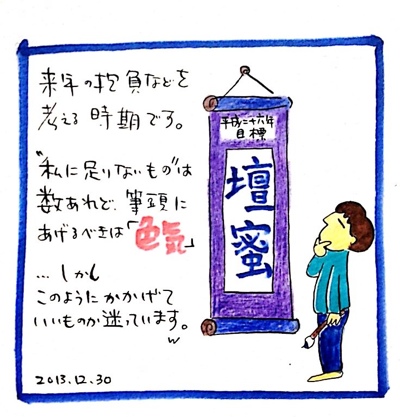 来年の抱負などを
考える時期です。
"私に足りないもの"は
数あれど、筆頭に
あげるべきは「色気」
…しかし
このようにかかげて
いいものか迷っています。
w
2013.12.30
平成二十六年
目標
壇蜜